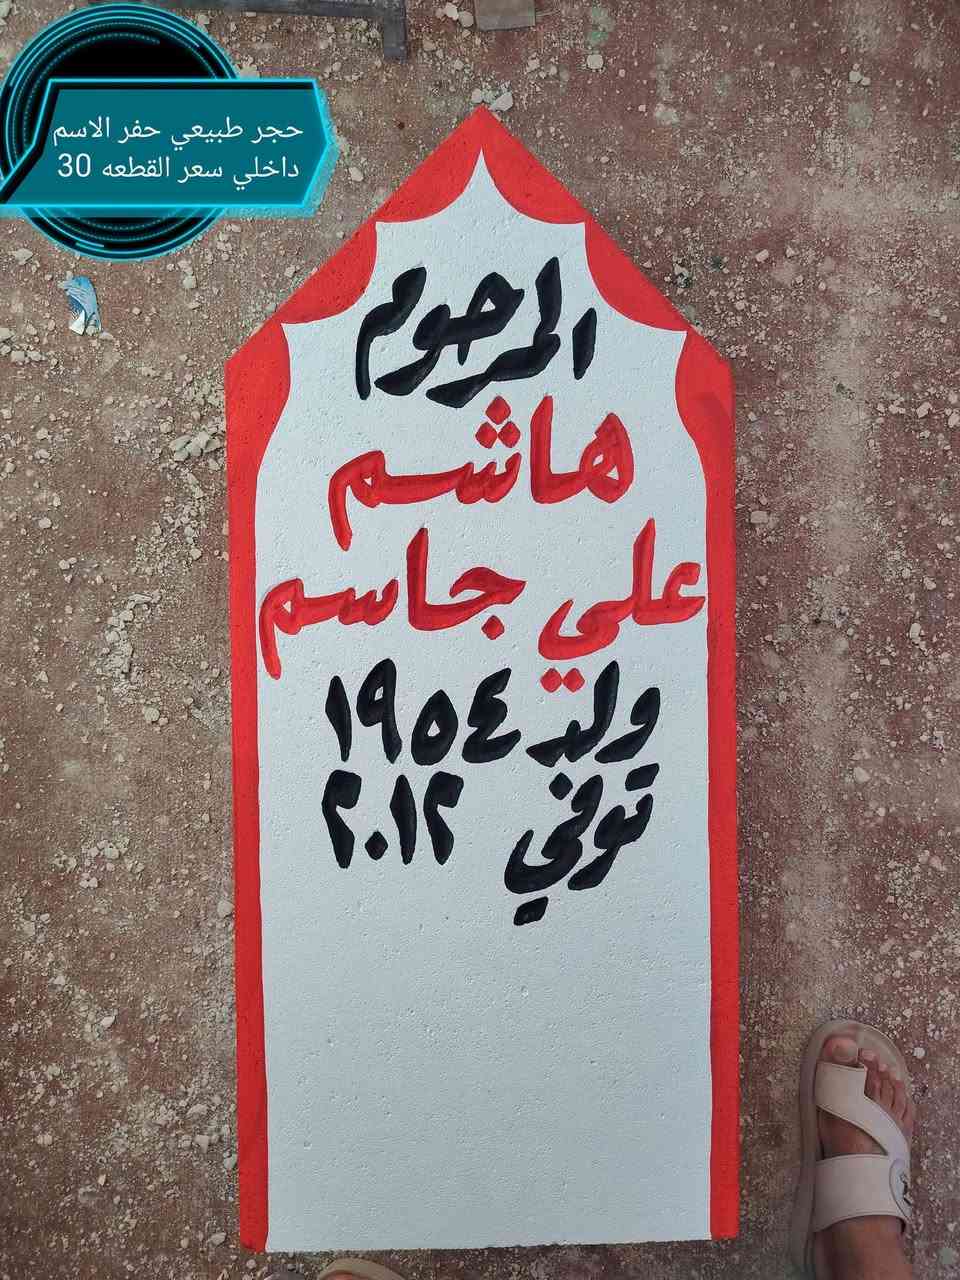 حجر طبيعي حفر الاسم
داخلي سعر القطعه 30
المرحوم
هاشم
علي جاسم
ولد ١٩٥٤
توفي ٢٠١٢